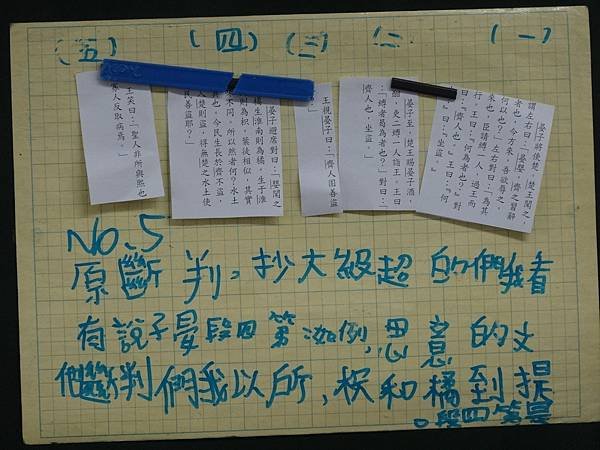 (一)
(二)
(三)
(四)
(五)
晏子將使楚,楚王聞之,
謂左右曰:「晏嬰,齊之習辭
者也,今方來,吾欲辱之,
何以也?」左右對曰:「為其
來也,臣請縛一人,過王而
行。王曰:『何為者也?』對
曰:『齊人也。』王曰:『何
坐?』曰:『坐盜。』
晏子至,楚王賜晏子酒,
酣,吏二縛一人詣王。王曰
:「縛者曷為者也?」對曰:
「齊人也,坐盜。」
王視晏子曰:「齊人固善盜
晏子避席對曰:「嬰聞之
橘生淮南則為橘,生于淮
則為枳,葉徒相似,其實
味不同。所以然者何?水土
異也。今民生長於齊不盜,
入楚則盜,得無楚之水土使
民善盜耶?」
王笑曰:「聖人非所與熙也
寡人反取病焉。」
NO.5
看我們的超級大抄。判斷原
文的意思,例如第四段晏子說有
提到橘和枳,所以我們判斷
是第四段。